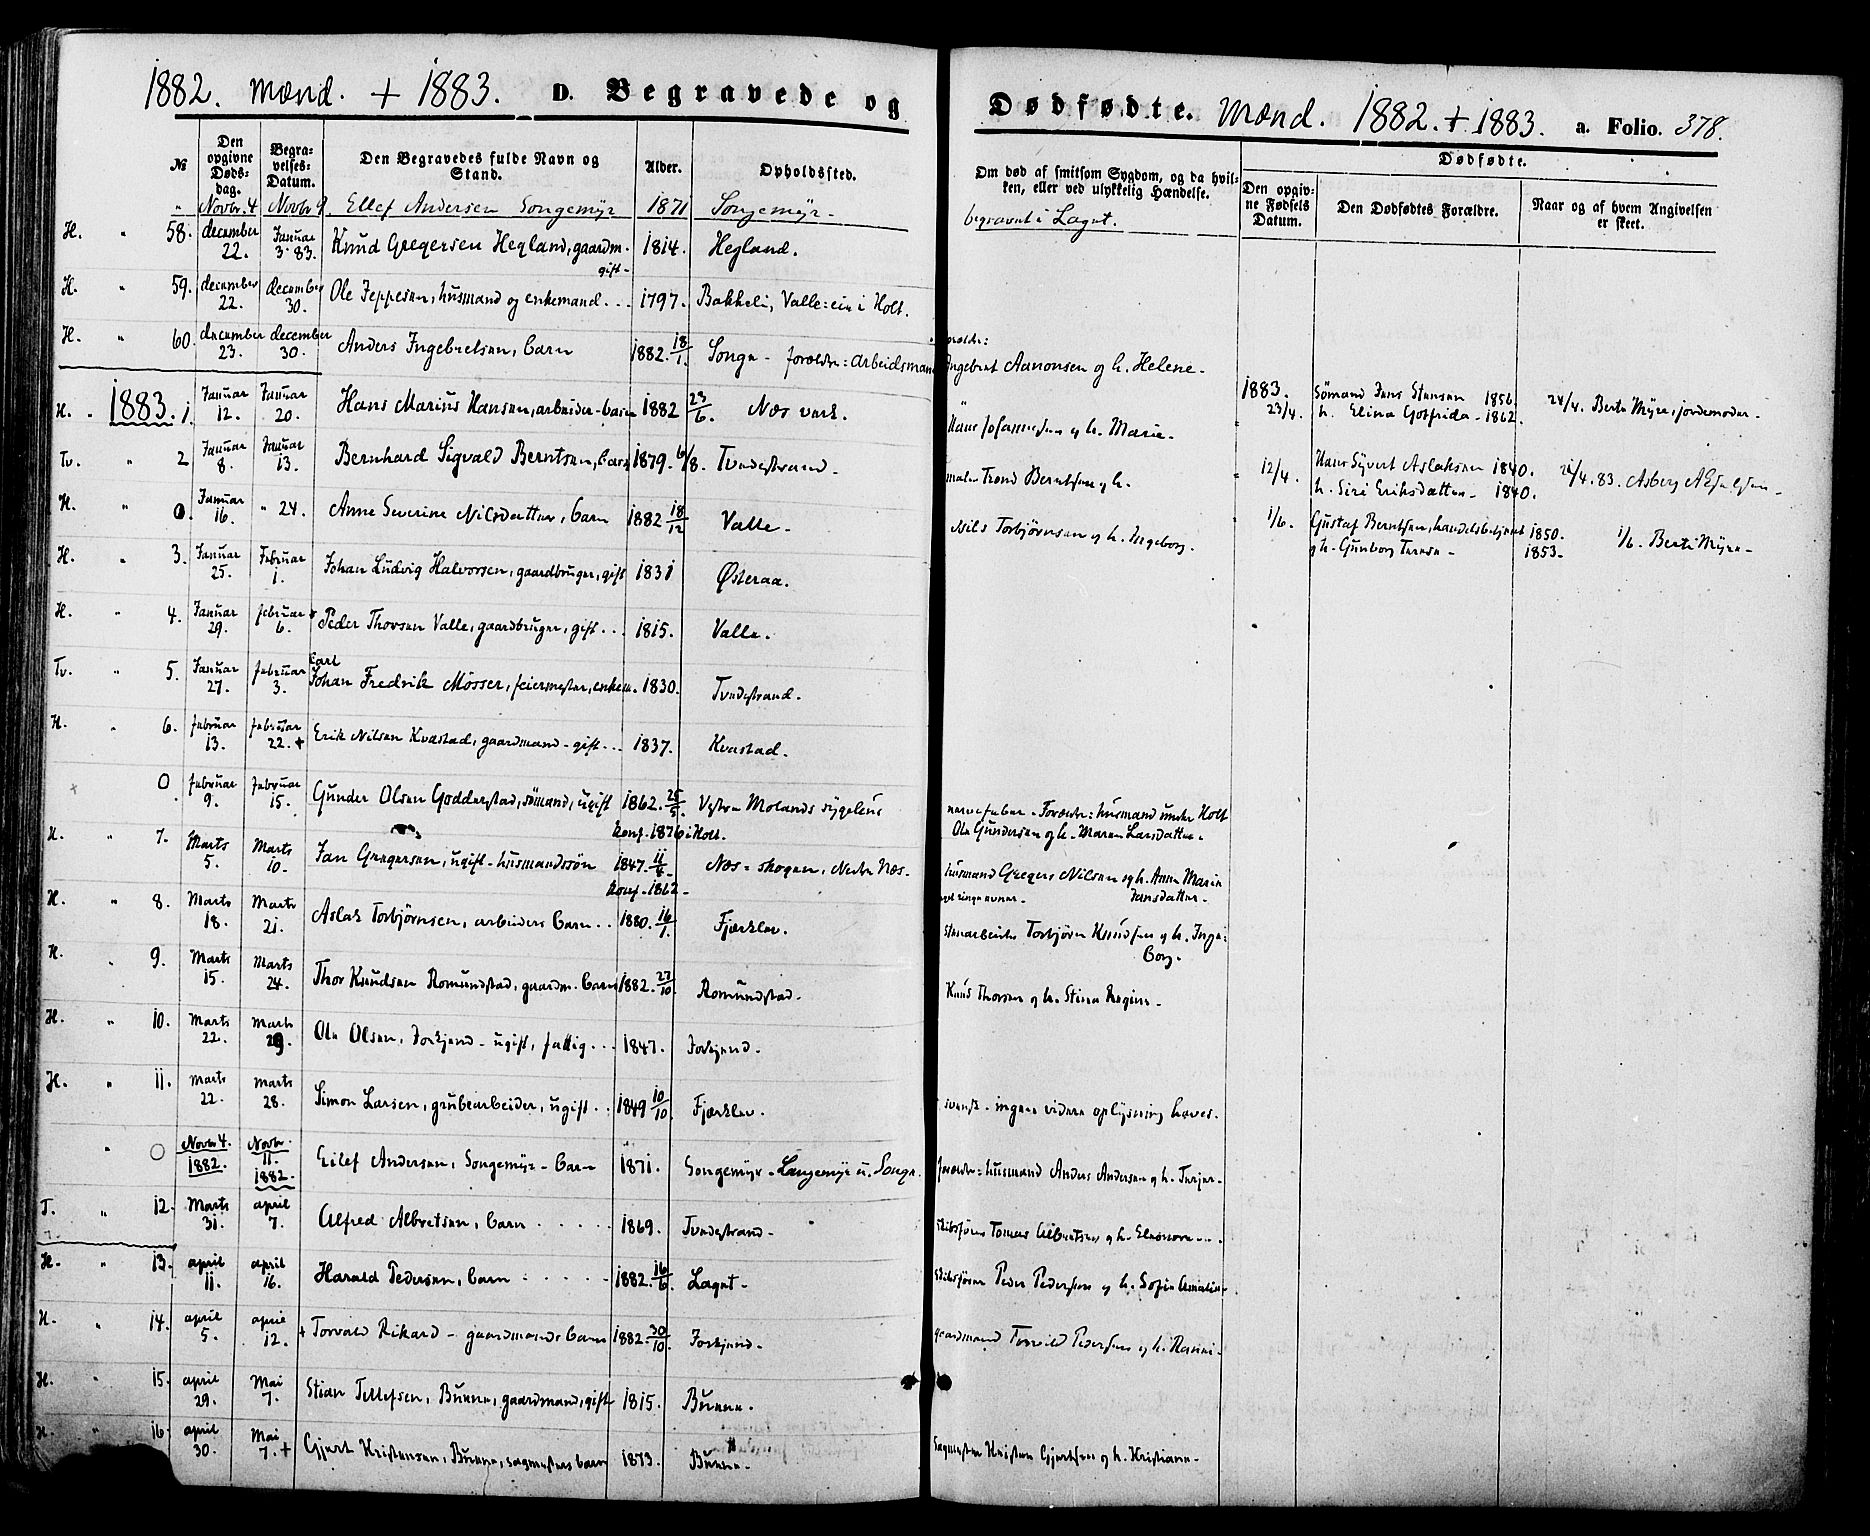 1882. Mænd. + 1883. D. Begravede og
Dødfødte. Mænd. 1882. + 1883. a. Folio. 378.
№ Den opgivne Døds-dag. Begra-velses-Datum. Den Begravedes fulde Navn og Stand. Alder. Opholdssted.
Om død af smitsom Sygdom, og da hvil-ken, eller ved ulykkelig Hændelse.
Dødfødte.
Den opgiv-ne Fødsels Datum. Den Dødfødtes Forældre. Naar og af hvem Angivelsen er skeet.
" Novbr. 4 Novbr 9. Ellef Andersen Songemyr 1871 Songemyr. begravet i Laget.
H. " 58. december 22. Januar 3. 83. Knud Gregersen Hegland, gaardm. gift. 1814. Hegland.
H. " 59. december 22. december 30. Ole Jeppesen, husmand og enkemand... 1797. Bakkeli, Valle: eie i Holt.
H. " 60. december 23. december 30. Anders Ingebretsen, barn 1882. 18/1. Songe - forældre: arbeidsmand Ingebret Aanonsen og h. Helene.
H. " 1883. 1. Januar 12. Januar 20. Hans Marius Hansen, arbeider-barn 1882 23/6. Næs verk. Hans Johannesen og h. Marie.
Tv. " 2 Januar 8. Januar 13. Bernhard Sigvald Berntsen, barn 1879. 6/8. Tvedestrand. maler Trond Berntsen og h.
H. " 0. Januar 16. " 24. Anne Severine Nilsdatter, barn 1882 18/12 Valle. Nils Torbjørnsen og h. Ingeborg.
H. " 3. Januar 25. Februar 1. Johan Ludvig Halvorsen, gaardbruger, gift 1831 Østeraa.
H. " 4. Januar 29. februar 6. Peder Thorsen Valle, gaardbruger, gift... 1815. Valle.
Tv. " 5. Januar 27. februar 3. Carl Johan Fredrik Mösser, feiermester, enkem. 1830. Tvedestrand.
H. " 6. februar 13. februar 22. + Erik Nilsen Kvastad, gaardmand - gift... 1837. Kvastad.
+ 0. februar 9. februar 15. Gunder Olsen Godderstad, sømand, ugift 1862. 25/5. Vestre Molands sygehus
konf. 1876 i Holt.
nervefeber. Forældre: husmand under Holt Ole Gundersen og h. Maren Larsdatter.
H. " 7. Marts 5. Marts 10. Jan Gregersen, ugift - husmandssön 1847. 11/6. Næs - skogen, Nedre Næs.
konf. 1862.
husmand Gregers Nilsen og h. Anne Marie Jansdatter.
H. " 8. Marts 18. Marts 21. Aslak Torbjørnsen, arbeiders barn.. 1880. 16/1. Fjærklev. stenarbeider Torbjörn Knudsen og h. Inge: borg.
H. 9. Marts 15. Marts 24. Thor Knudsen Romundstad, gaardm. barn 1882. 27/10. Romundstad. Knud Thorsen og h. Stina Regine.
H. " 10. Marts 22. Marts 29. Ole Olsen, Forkjend - ugift, fattig... 1847. Forkjend.
H. " 11. Marts 22. Marts 28. Simon Larsen, grubearbeider, ugift.. 1849 10/10. Fjærklev. svensk - ingen videre oplysning haves.
" 0 Novbr 4. 1882. Novbr. 11. 1882. Eilef Andersen, Songemyr - barn 1871. Songemyr - Langemyr u. Songe. forældre: husmand Anders Andersen og h. Turjer.
T. " 12. Marts 31. april 7. Alfred Albretsen, barn ..... 1869. Tvedestrand. skibsfører Tomas Albretsen og h. Eleonora...
H. " 13. april 11. april 16. Harald Pedersen, barn ..... 1882. 16/6. Laget. skibsfører Peder Pedersen og h. Sofie Amalie.
H. " 14. april 5. april 12. + Torvald Rikard - gaardmands barn 1882. 30/10. Forkjend. gaardmand Torvild Pedersen og h.
H. " 15. april 29. Mai 7. Stian Tellefsen, Buene, gaardmand, gift 1815. Buene.
H. " 16. april 30. Mai 7. + Gjert Kristensen, Buene, sagmesters barn 1873. Buene. Sagmester Kristen Gjertsen og h. Kristiane.
1883. 23/4. Sømand Jens Stensen 1856. h. Elina Gotfrida - 1862. 24/4. Berte Myre, jordemoder.
" 12/4. Hans Syvert Aslaksen 1840. h. Siri Eriksdatter - 1840. 21/4. 83. Asberg
" 1/6. Gustaf Berntsen, handelsbetjent 1850. og h. Gunborg Terese - 1853. 1/6. Berte Myre.